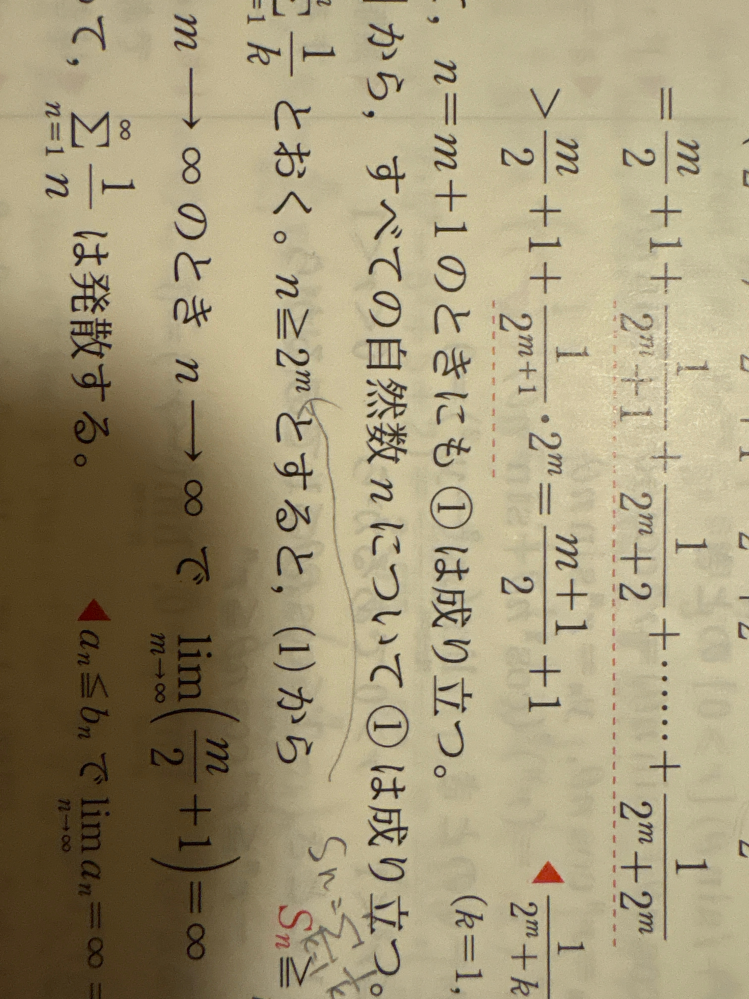 = m/2 + 1 + 1/(2^m+1) + 1/(2^m+2) + …… + 1/(2^m+2^m)
> m/2 + 1 + 1/2^{m+1} · 2^m = (m+1)/2 + 1
◀ 1/(2^m+k)
(k=1,
, n=m+1 のときにも ① は成り立つ。
から, すべての自然数 n について ① は成り立つ。
Sn=Σ 1/k
Σ 1/k とおく。n≧2^m とすると, (1) から
Sn≧
m ⟶ ∞ のとき n ⟶ ∞ で lim_{m→∞} (m/2 + 1) = ∞
て, Σ_{n=1}^{∞} 1/n は発散する。
◀ an≦bn で lim_{n→∞} an=∞